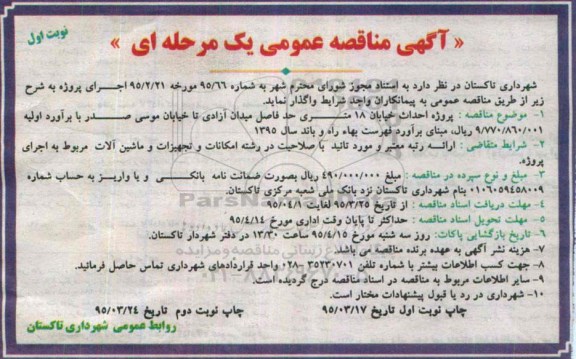 نوبت اول
« آگهی مناقصه عمومی یک مرحله ای »
شهرداری تاکستان در نظر دارد به استناد مجوز شورای محترم شهر به شماره ۹۵/۶۶ مورخه ۹۵/۲/۲۱ اجرای پروژه به شرح
زیر از طریق مناقصه عمومی به پیمانکاران واجد شرایط واگذار نماید.
۱- موضوع مناقصه : پروژه احداث خیابان ۱۸ متری حد فاصل میدان آزادی تا خیابان موسی صدر با برآورد اولیه
۹/۷۷۰/۸۶۰/۰۰۱ ریال، مبنای برآورد فهرست بهاء راه و باند سال ۱۳۹۵
۲- شرایط متقاضی : ارائه رتبه معتبر و مورد تائید با صلاحیت در رشته امکانات و تجهیزات و ماشین آلات مربوط به اجرای
پروژه.
۳- مبلغ و نوع سپرده در مناقصه : مبلغ ۴۹۰/۰۰۰/۰۰۰ ریال بصورت ضمانت نامه بانکی و یا واریز به حساب شماره
۰۱۰۶۰۵۹۴۵۸۰۰۹ بنام شهرداری تاکستان نزد بانک ملی شعبه مرکزی تاکستان.
۴- مهلت دریافت اسناد مناقصه : از تاریخ ۹۵/۳/۲۵ لغایت
۵- مهلت تحویل اسناد مناقصه : حداکثر تا پایان وقت اداری مورخ ۹۵/۴/۱۴
۶- تاریخ بازگشایی پاکات: روز سه شنبه مورخ ۹۵/۴/۱۵ ساعت ۱۳/۳۰ در دفتر شهردار تاکستان.
۷- هزینه نشر آگهی به عهده برنده مناقصه می باشد.
۸- جهت کسب اطلاعات بیشتر با شماره تلفن ۳۵۲۳۰۷۰۱-۰۲۸ واحد قراردادهای شهرداری تماس حاصل فرمائید.
۹- سایر اطلاعات مربوط به مناقصه در اسناد مناقصه درج گردیده است.
۱۰- شهرداری در رد یا قبول پیشنهادات مختار است.
چاپ نوبت اول تاریخ ۹۵/۰۳/۱۷ چاپ نوبت دوم تاریخ ۹۵/۰۳/۲۴
روابط عمومی شهرداری تاکستان